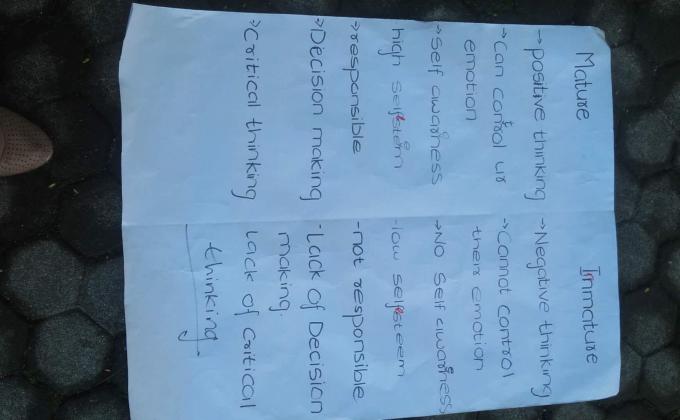 Mature
Immature
→ positive thinking
→ Negative thinking
→ Can control ur
→ Cannot control
emotion
there emotion
→ Self awarness
→ No Self awarness
high selfsteem
- low selfsteem
→ responsible
- not responsible
→ Decision making
- Lack of Decision
making
→ Critical thinking
Lack of critical
thinking.